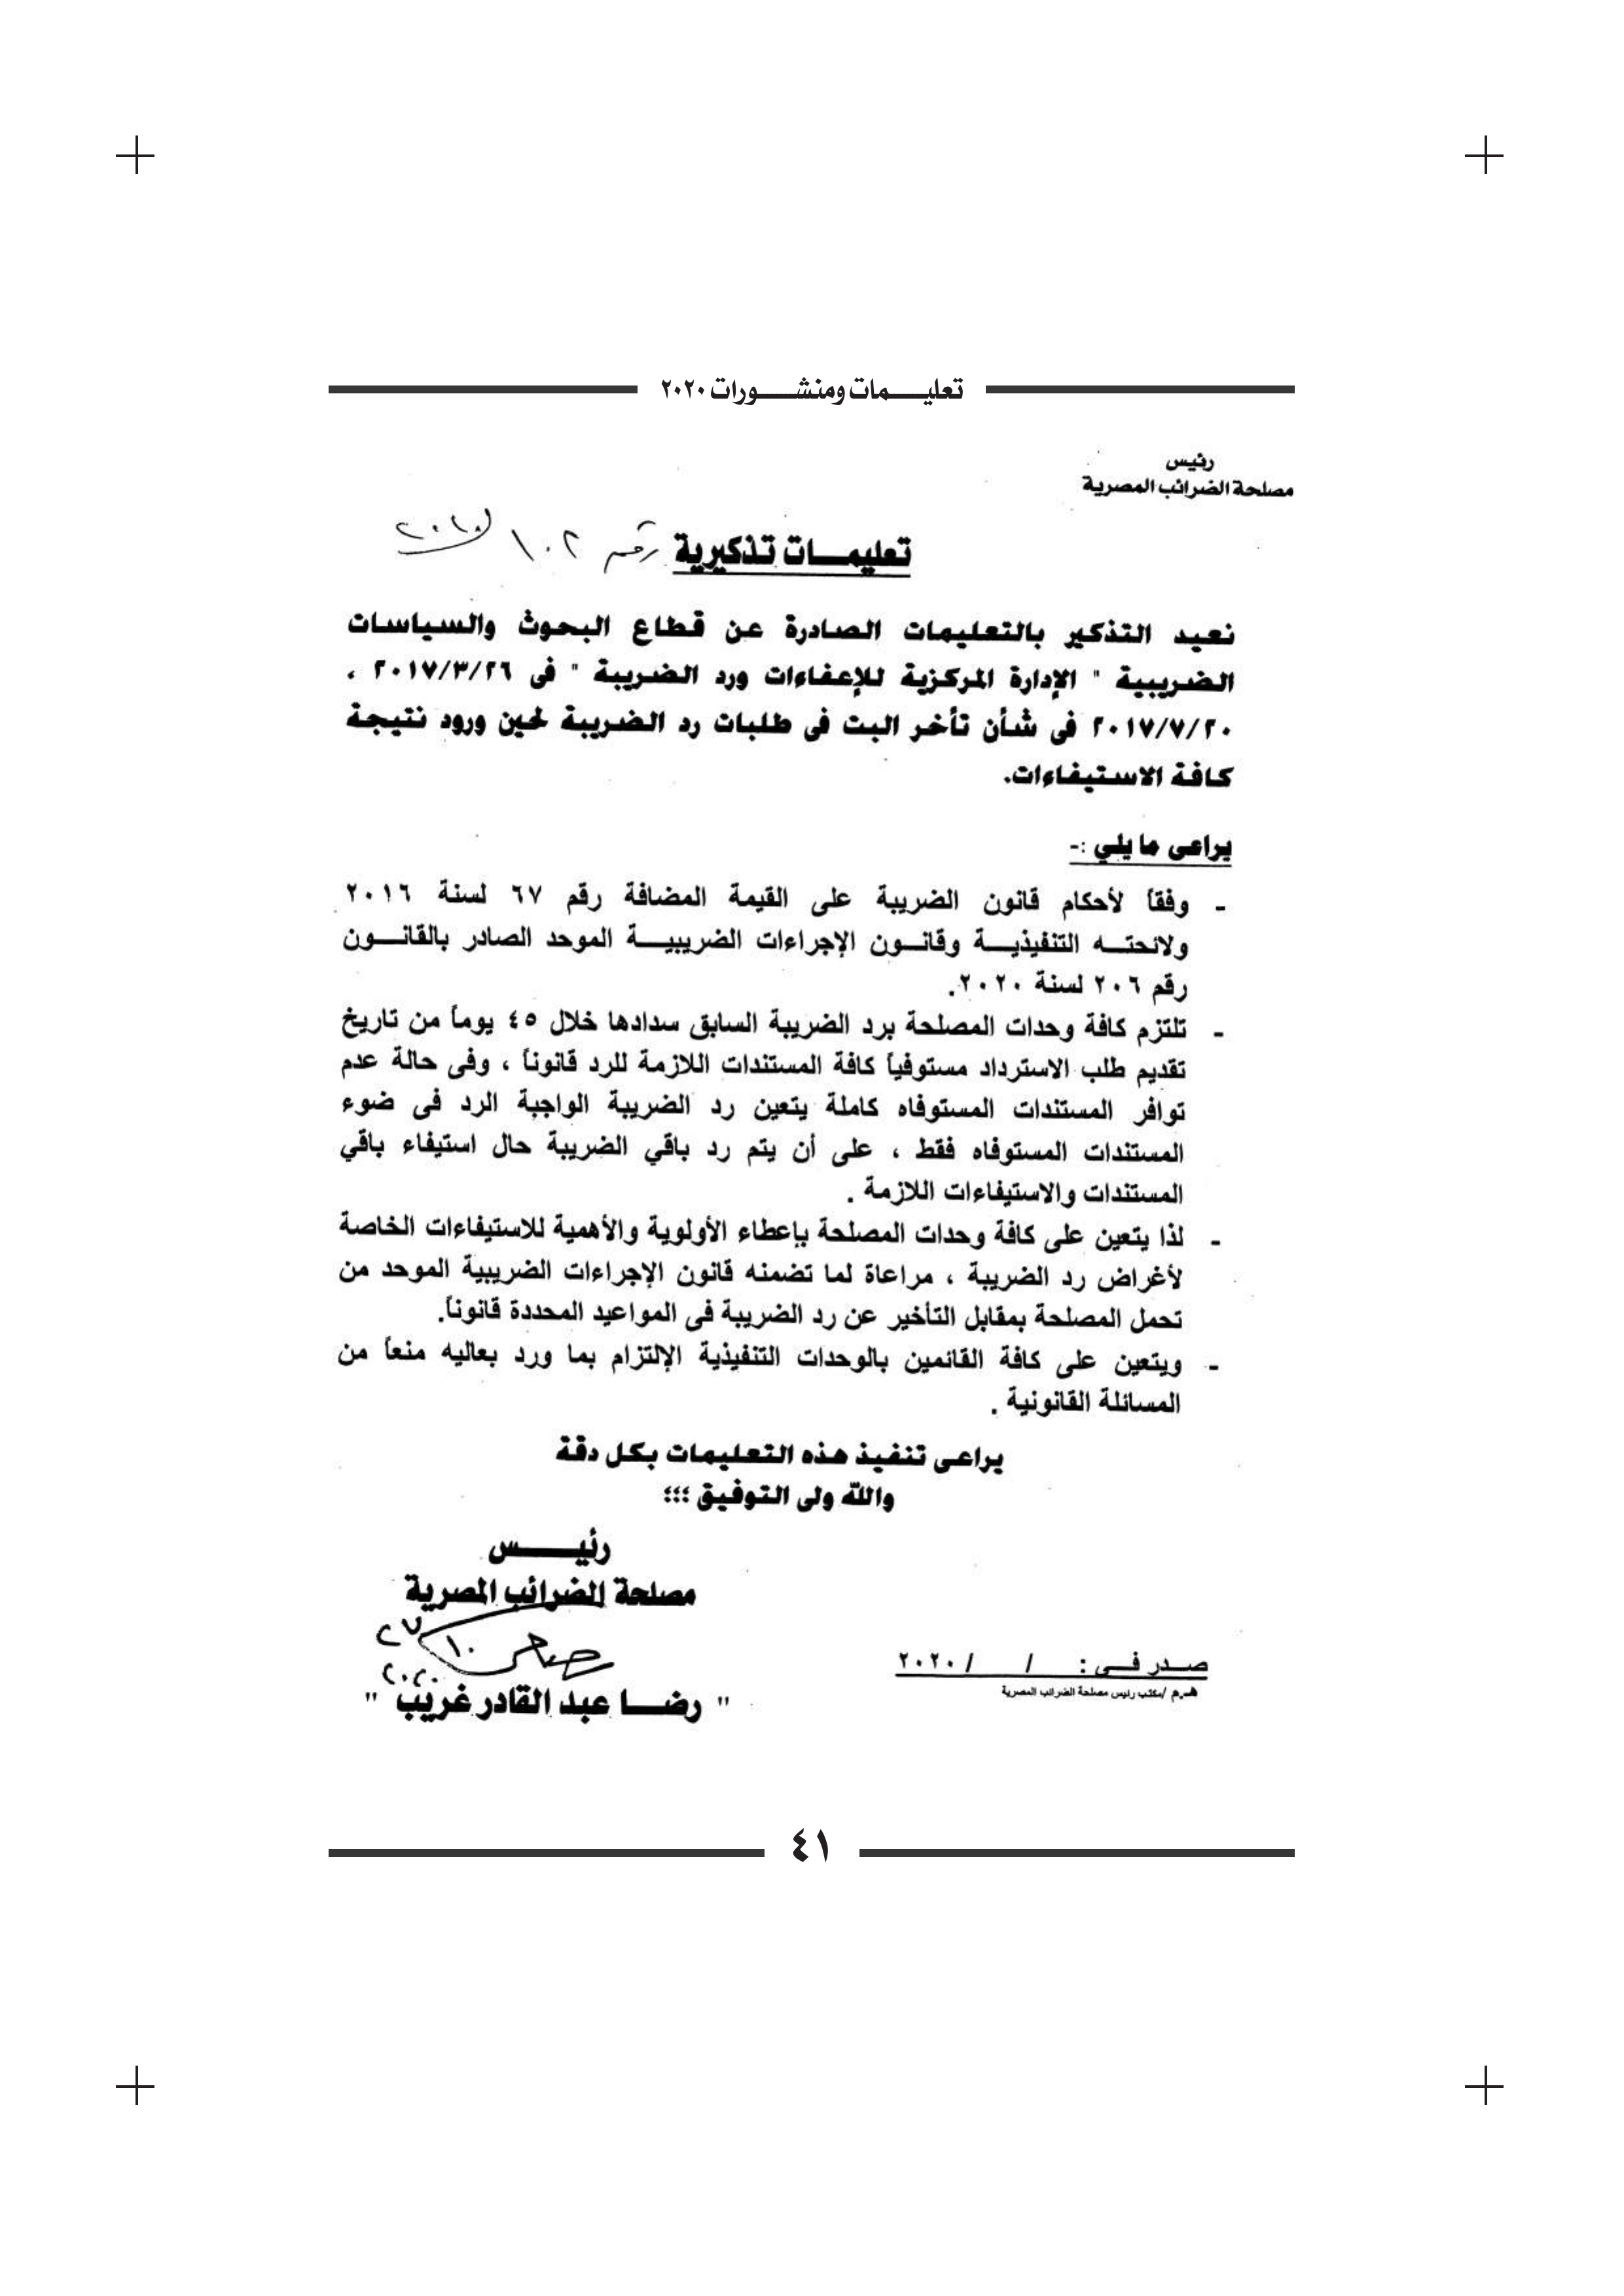 تعليـــمات ومنشـــورات ٢٠٢٠
رئيس
مصلحة الضرائب المصرية
تعليمـــات تذكيرية رقم ١٠٢ / ٢٠٢٠
نعيد التذكير بالتعليمات الصادرة عن قطاع البحوث والسياسات
الضريبية " الإدارة المركزية للإعفاءات ورد الضريبة " فى ٢٠١٧/٣/٢٦ ،
٢٠١٧/٧/٢٠ فى شأن تأخر البت فى طلبات رد الضريبة لحين ورود نتيجة
كافة الاستيفاءات.
يراعى ما يلي :-
- وفقاً لأحكام قانون الضريبة على القيمة المضافة رقم ٦٧ لسنة ٢٠١٦
ولائحتـــه التنفيذيـــة وقانـــون الإجراءات الضريبيـــة الموحد الصادر بالقانـــون
رقم ٢٠٦ لسنة ٢٠٢٠.
- تلتزم كافة وحدات المصلحة برد الضريبة السابق سدادها خلال ٤٥ يوماً من تاريخ
تقديم طلب الاسترداد مستوفياً كافة المستندات اللازمة للرد قانوناً ، وفى حالة عدم
توافر المستندات المستوفاه كاملة يتعين رد الضريبة الواجبة الرد فى ضوء
المستندات المستوفاه فقط ، على أن يتم رد باقي الضريبة حال استيفاء باقي
المستندات والاستيفاءات اللازمة .
- لذا يتعين على كافة وحدات المصلحة بإعطاء الأولوية والأهمية للاستيفاءات الخاصة
لأغراض رد الضريبة ، مراعاة لما تضمنه قانون الإجراءات الضريبية الموحد من
تحمل المصلحة بمقابل التأخير عن رد الضريبة فى المواعيد المحددة قانوناً.
- ويتعين على كافة القائمين بالوحدات التنفيذية الإلتزام بما ورد بعاليه منعاً من
المسائلة القانونية .
يراعى تنفيذ هذه التعليمات بكل دقة
والله ولى التوفيق ؛؛؛
رئيـــــس
مصلحة الضرائب المصرية
٢٧
١٠
٢٠٢٠
" رضـــا عبد القادر غريب "
صـــدر فـــى : / / ٢٠٢٠
هـ.م /مكتب رئيس مصلحة الضرائب المصرية
٤١